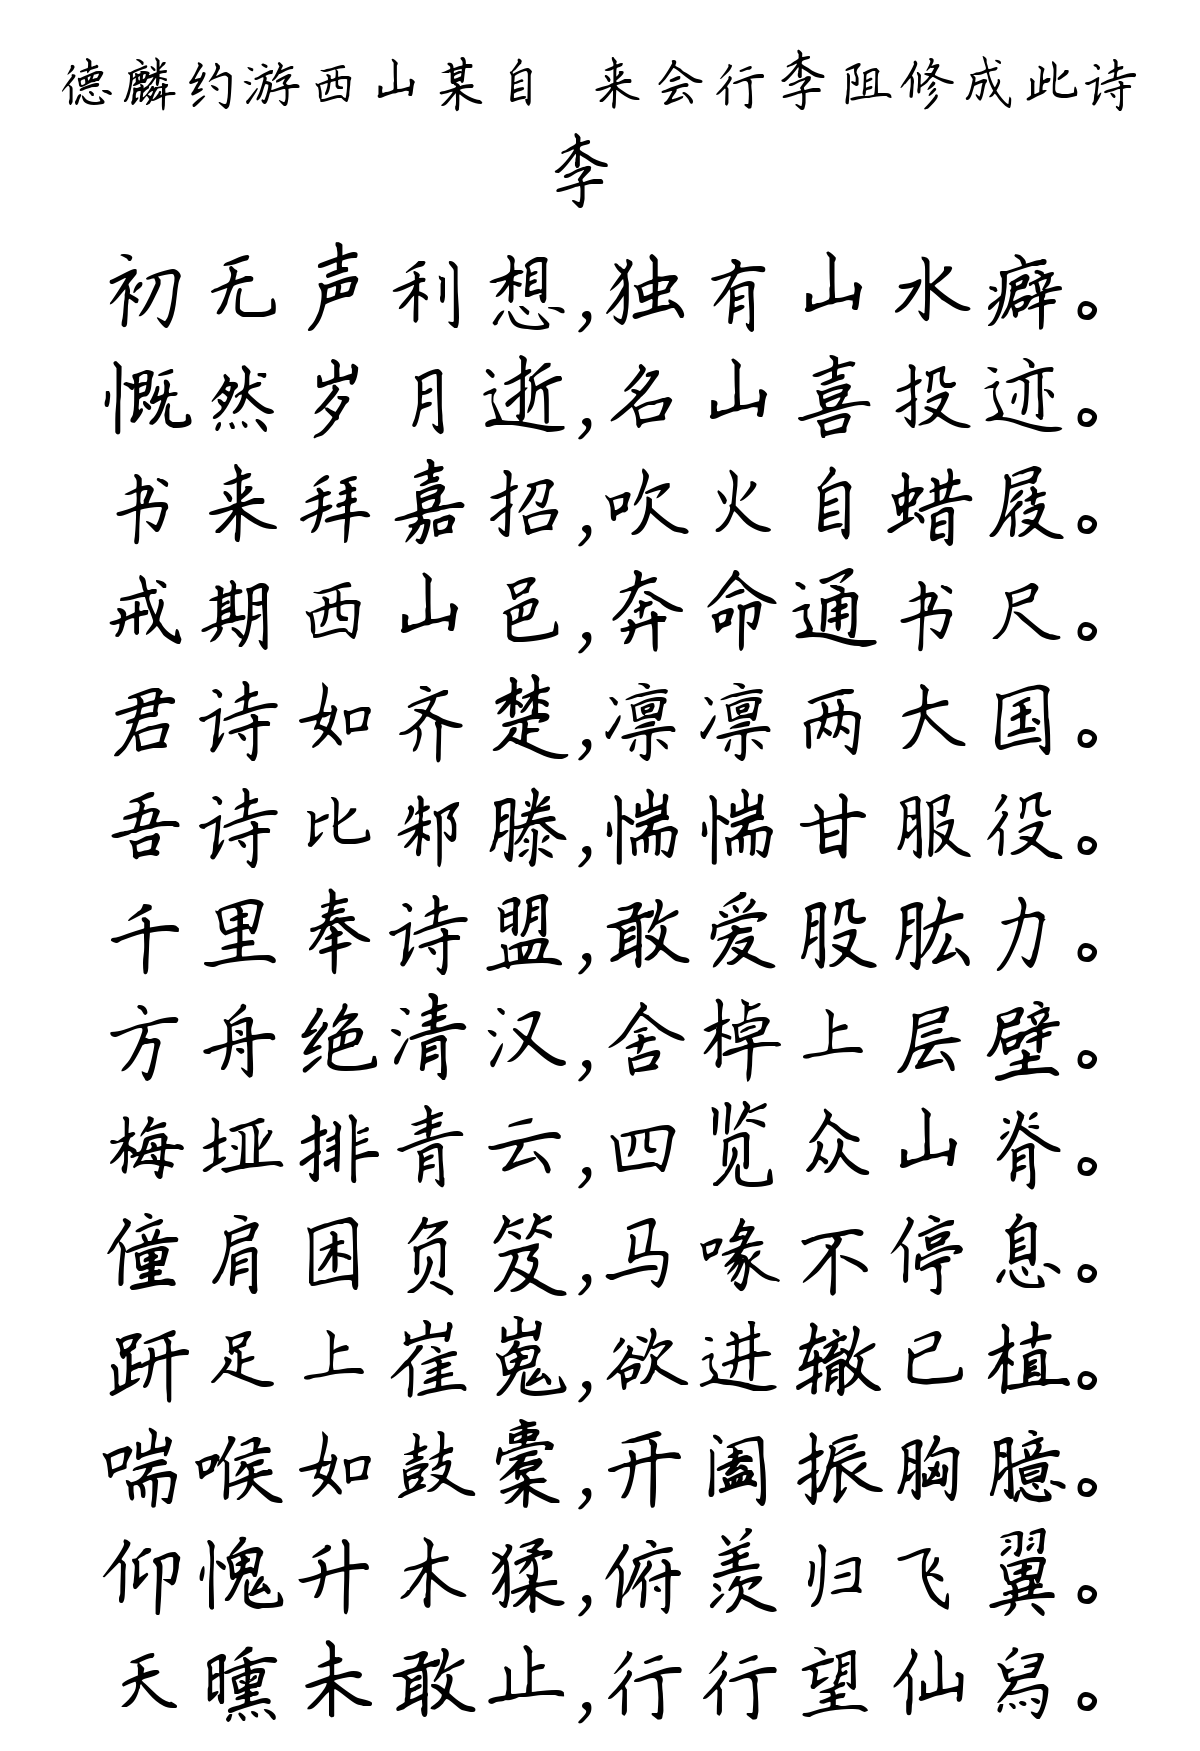 德麟约游西山某自 来会行李阻修成此诗
李
初无声利想,独有山水癖。
慨然岁月逝,名山喜投迹。
书来拜嘉招,吹火自蜡屐。
戒期西山邑,奔命通书尺。
君诗如齐楚,凛凛两大国。
吾诗比邾滕,惴惴甘服役。
千里奉诗盟,敢爱股肱力。
方舟绝清汉,舍棹上层壁。
梅垭排青云,四览众山脊。
僮肩困负笈,马喙不停息。
趼足上崔嵬,欲进辙已植。
喘喉如鼓橐,开阖振胸臆。
仰愧升木猱,俯羡归飞翼。
天曛未敢止,行行望仙舄。